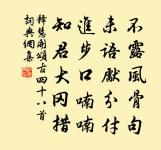 不露風骨句
未語獻分付
進步口喃喃
知君大罔措
釋慧開頌古四十八首
詞典網集